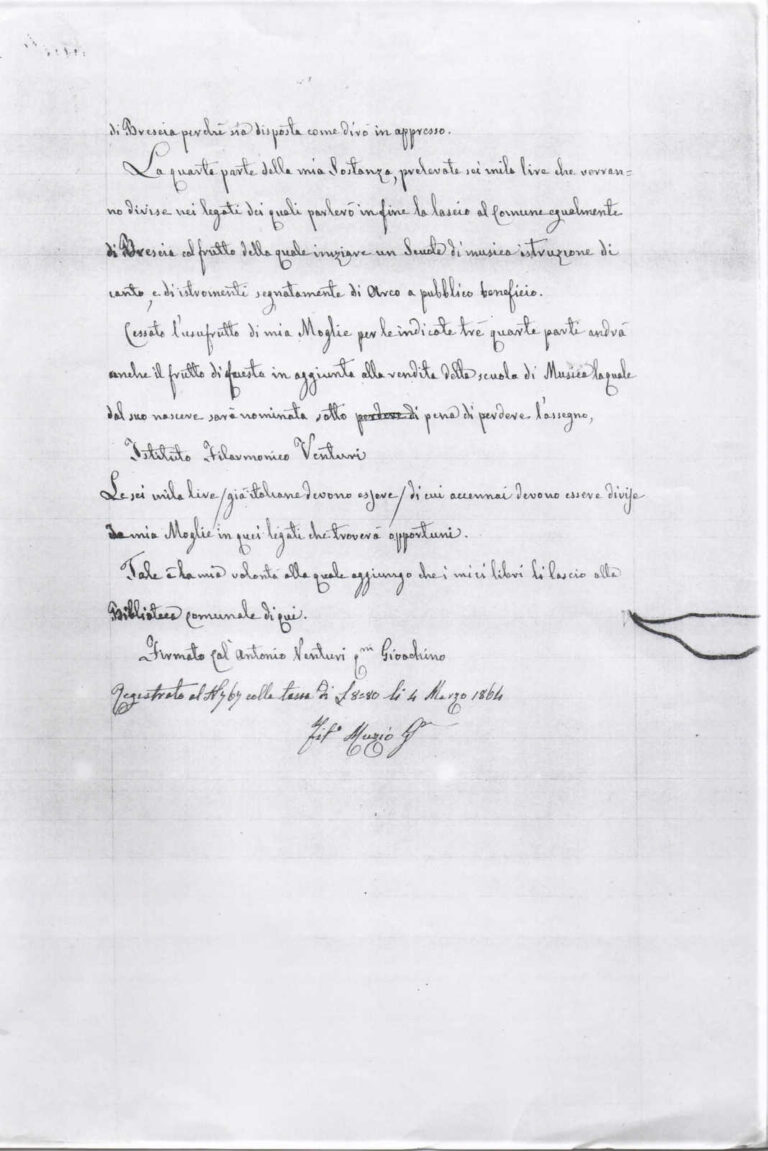 di Brescia perchè sia disposta come dirò in appresso.
La quarta parte della mia Sostanza, prelevate sei mila lire che verran=
no divise nei legati dei quali parlerò in fine la lascio al Comune egualmente
di Brescia col frutto della quale iniziare un Scuola di musica istruzione di
canto, e di istromenti segnatamente di Arco a pubblico beneficio.
Cessato l'usufrutto di mia Moglie per le indicate trè quarte parti andrà
anche il frutto di questa in aggiunta alla rendita della scuola di Musica la quale
dal suo nascere sarà nominata sotto perdere di pena di perdere l'assegno,
Istituto Filarmonico Venturi
Le sei mila lire / già italiane devono essere / di cui accennai devono essere divise
da mia Moglie in quei legati che troverà opportuni.
Tale è la mia volontà alla quale aggiungo che i miei libri li lascio alla
Biblioteca comunale di qui.
Firmato Antonio Venturi qm Gioachino
Registrato al N 767 colla tassa di £ 8=80 li 4 Marzo 1864
Muzio